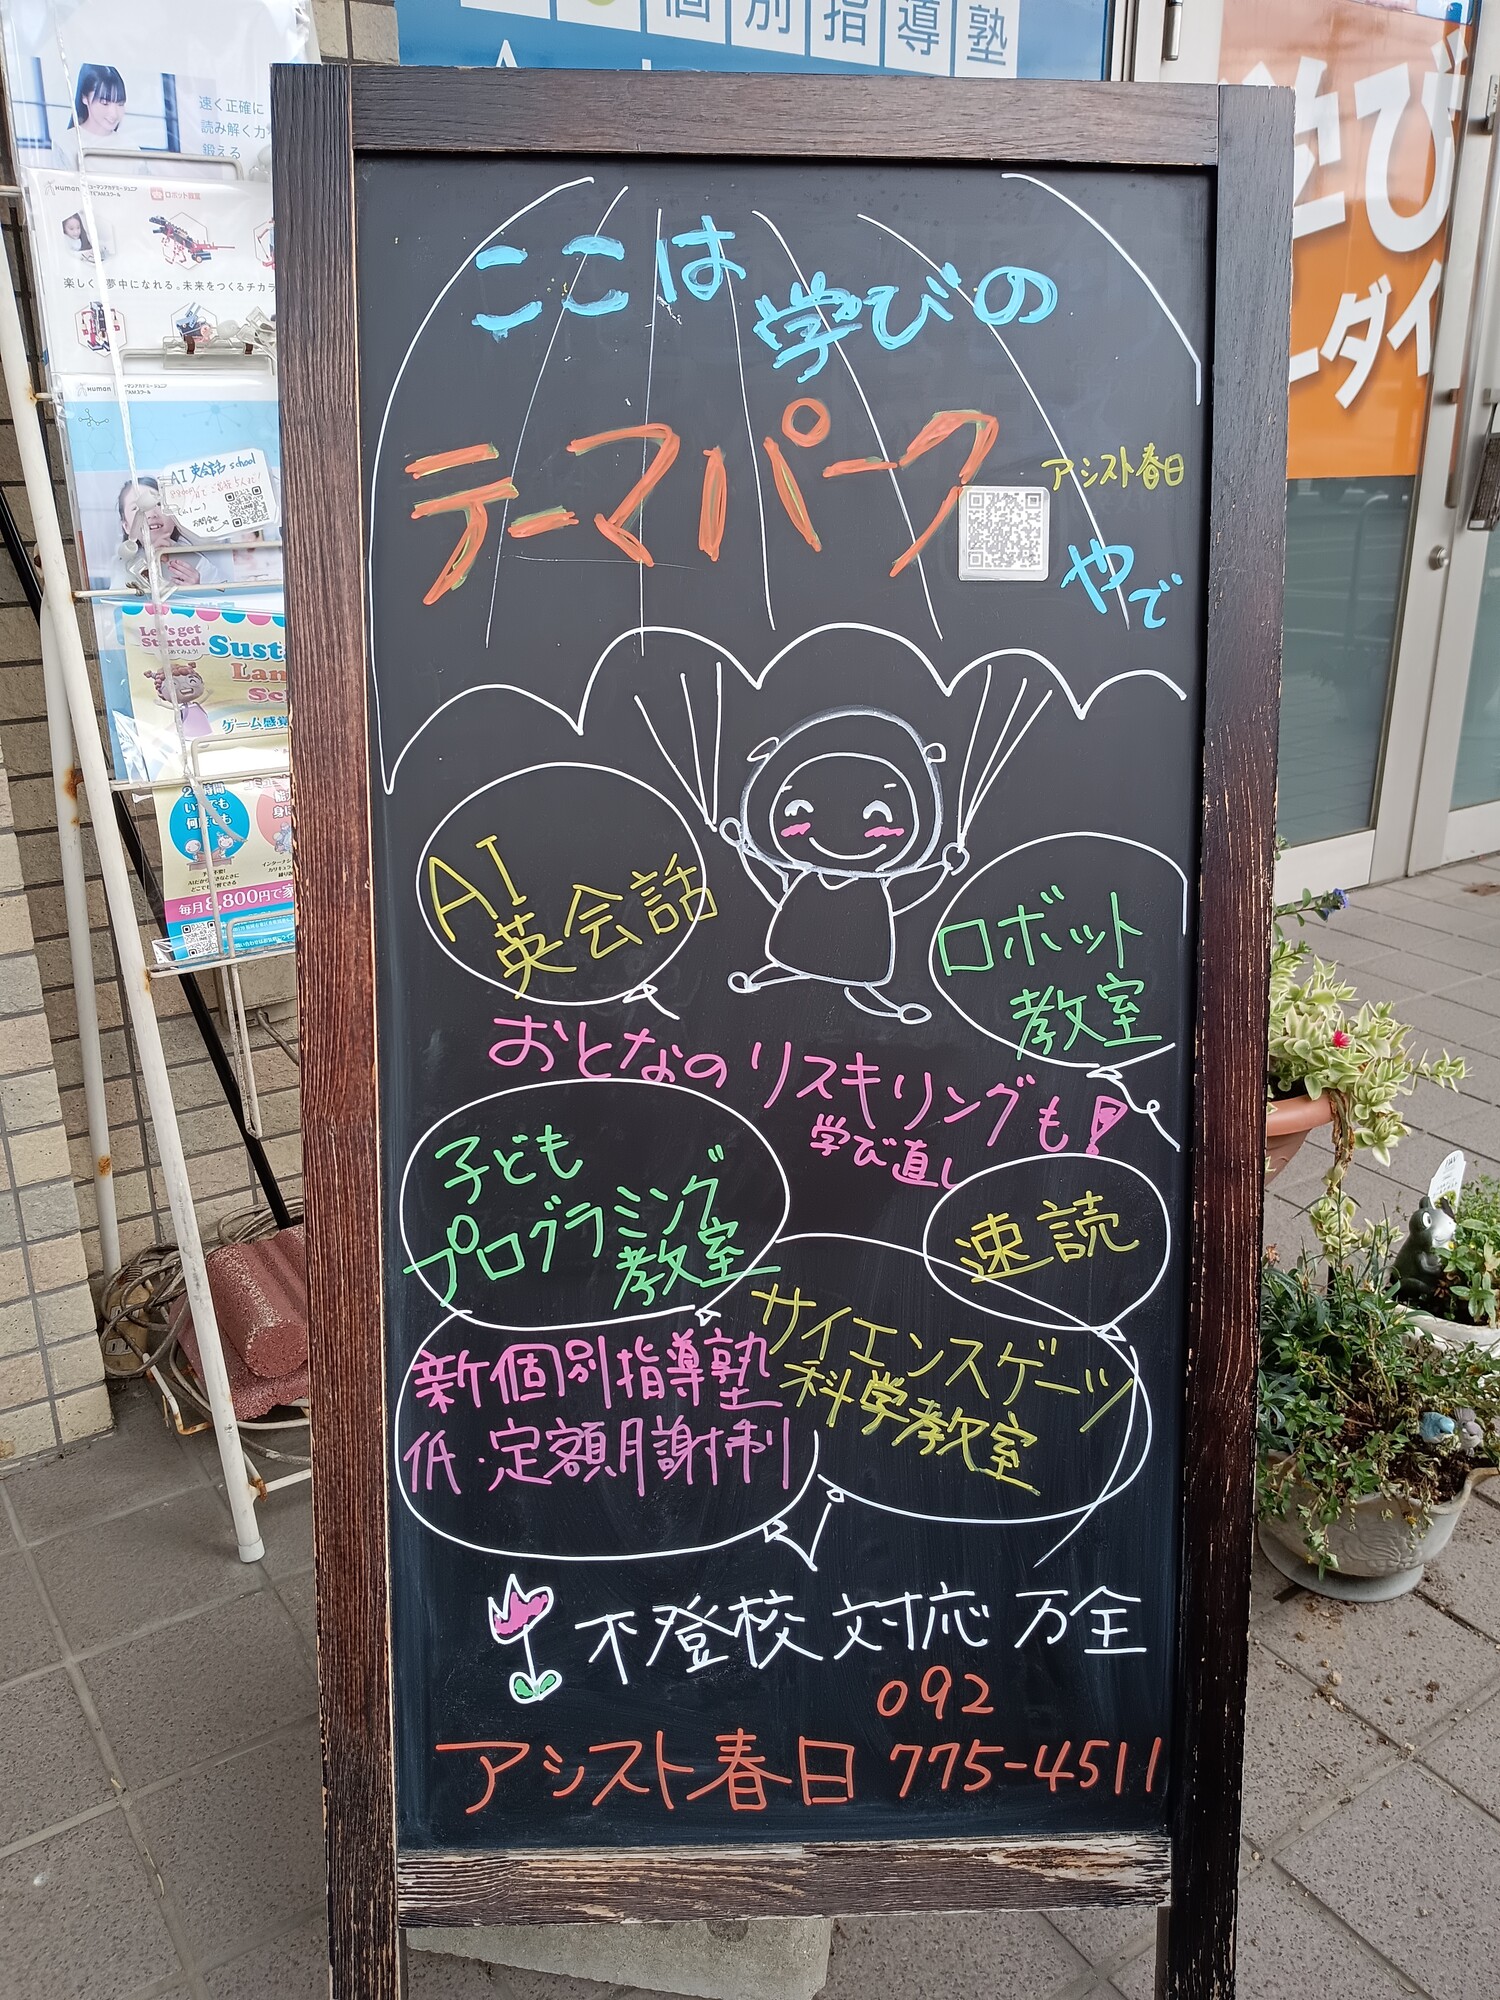 個別指導塾
速く正確に
読み解く力
鍛える
Human
ロボット教室
楽しく夢中になれる。未来をつくるチカラ
Human
AI英会話 school
Let's get
Started.
ゲーム感覚
いつでも
何度でも
毎月8,800円で
学び
ーダイ
ここは
学びの
テーマパーク
アシスト春日
やで
AI
英会話
ロボット
教室
おとなのリスキリングも!
学び直し
子ども
プログラミング
教室
速読
サイエンスゲーツ
科学教室
新個別指導塾
低・定額月謝制
不登校対応万全
092
アシスト春日 775-4511